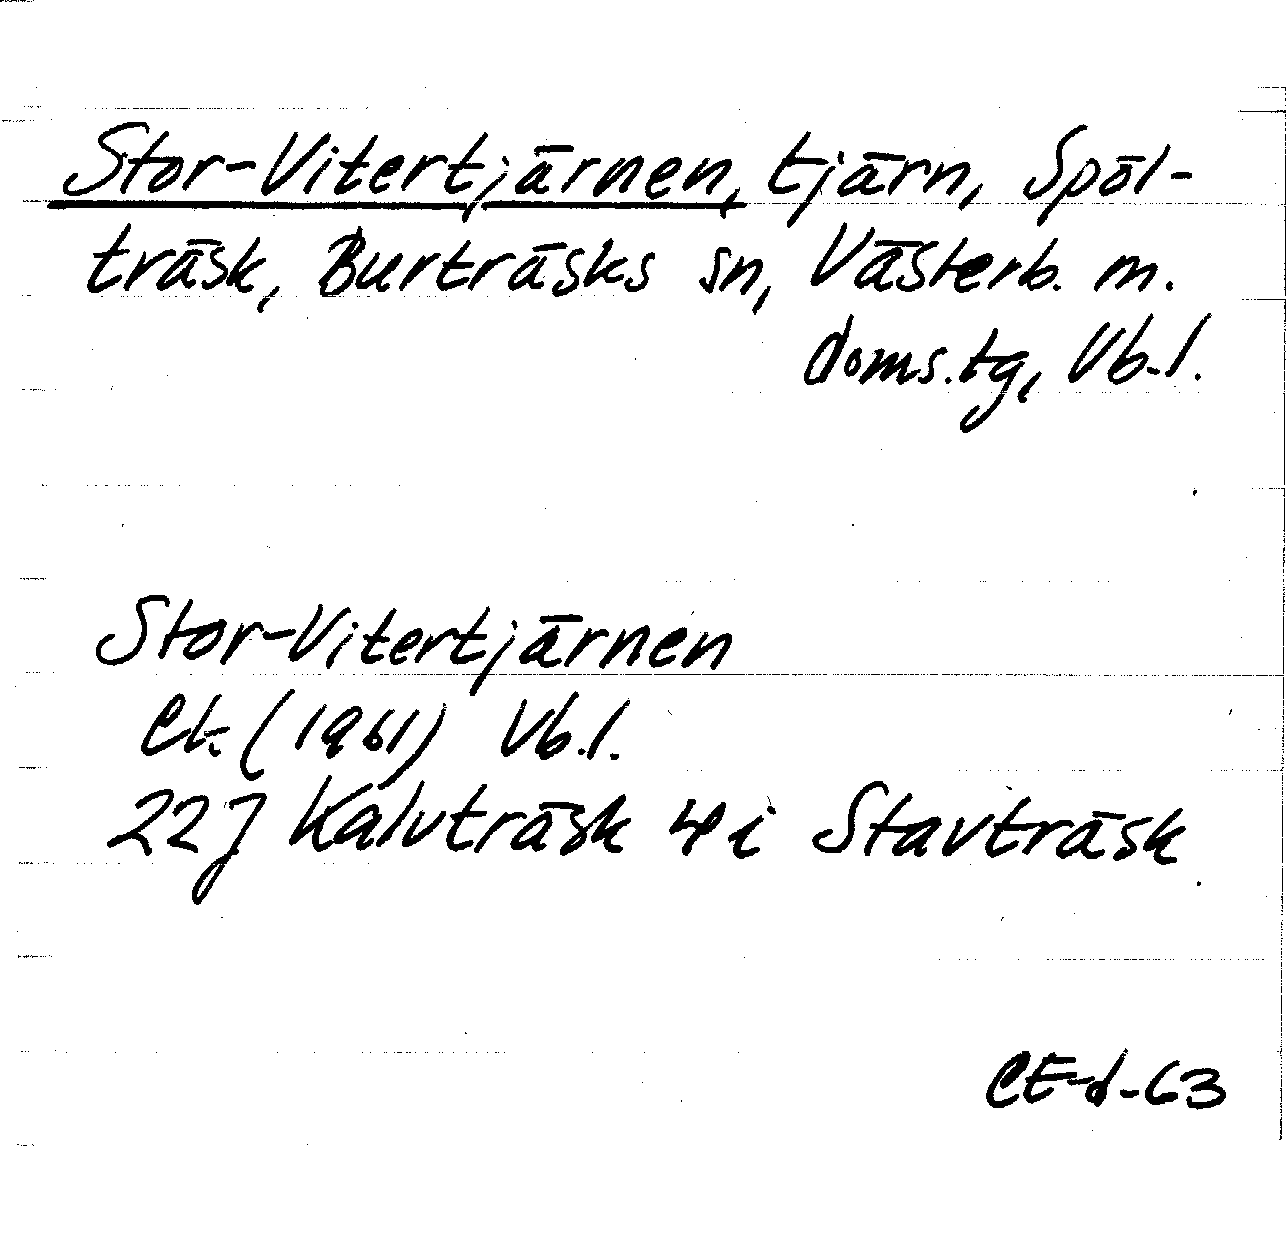 Stor-Vitertjärnen, tjärn, Spöl-
träsk, Burträsks sn, Västerb. m.
doms.tg, Vb.l.
Stor-Vitertjärnen
Ek (1961) Vb.l.
22J Kalvträsk 4i Stavträsk
CE-d-63